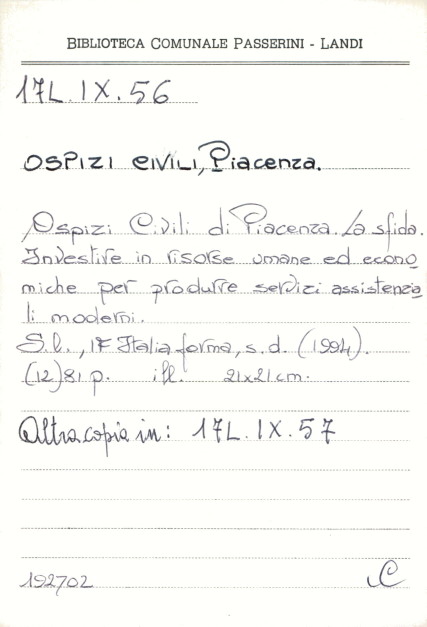 BIBLIOTECA COMUNALE PASSERINI - LANDI
17L.IX.56
OSPIZI CIVILI, Piacenza.
Ospizi Civili di Piacenza. La sfida.
Investire in risorse umane ed econo
miche per produrre servizi assistenzia
li moderni.
S.l., IF Italia forma, s.d. (1994).
(12) 81 p. ill. 21x21 cm.
Altra copia in: 17L.IX.57
192702 C